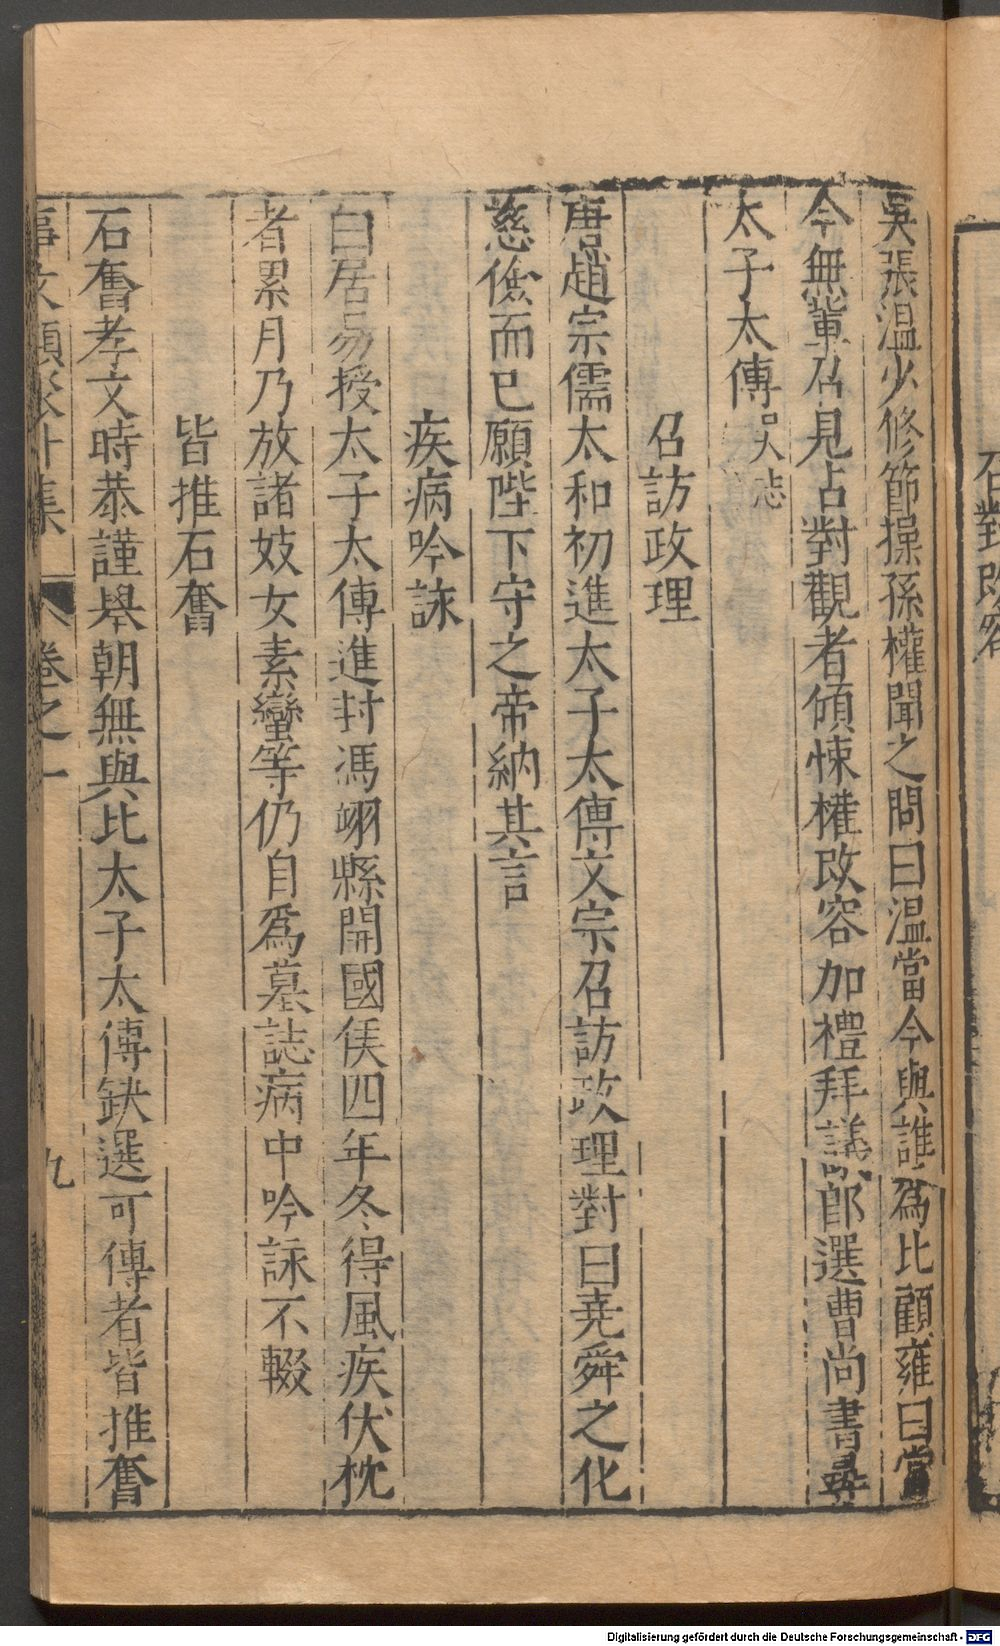 召對改容
吳張温少修節操孫權聞之問曰温當今與誰爲比顧雍曰當
今無輩召見占對觀者傾悚權改容加禮拜議郎選曹尚書
太子太傅吳志
召訪政理
唐趙宗儒太和初進太子太傅文宗召訪政理對曰堯舜之化
慈儉而已願陛下守之帝納其言
疾病吟詠
白居易授太子太傅進封馮翊縣開國侯四年冬得風疾伏枕
者累月乃放諸妓女素蠻等仍自爲墓誌病中吟詠不輟
皆推石奮
石奮孝文時恭謹舉朝無與比太子太傅缺選可傅者皆推奮
事文類聚 集 卷之一 九
Digitalisierung gefördert durch die Deutsche Forschungsgemeinschaft - DFG